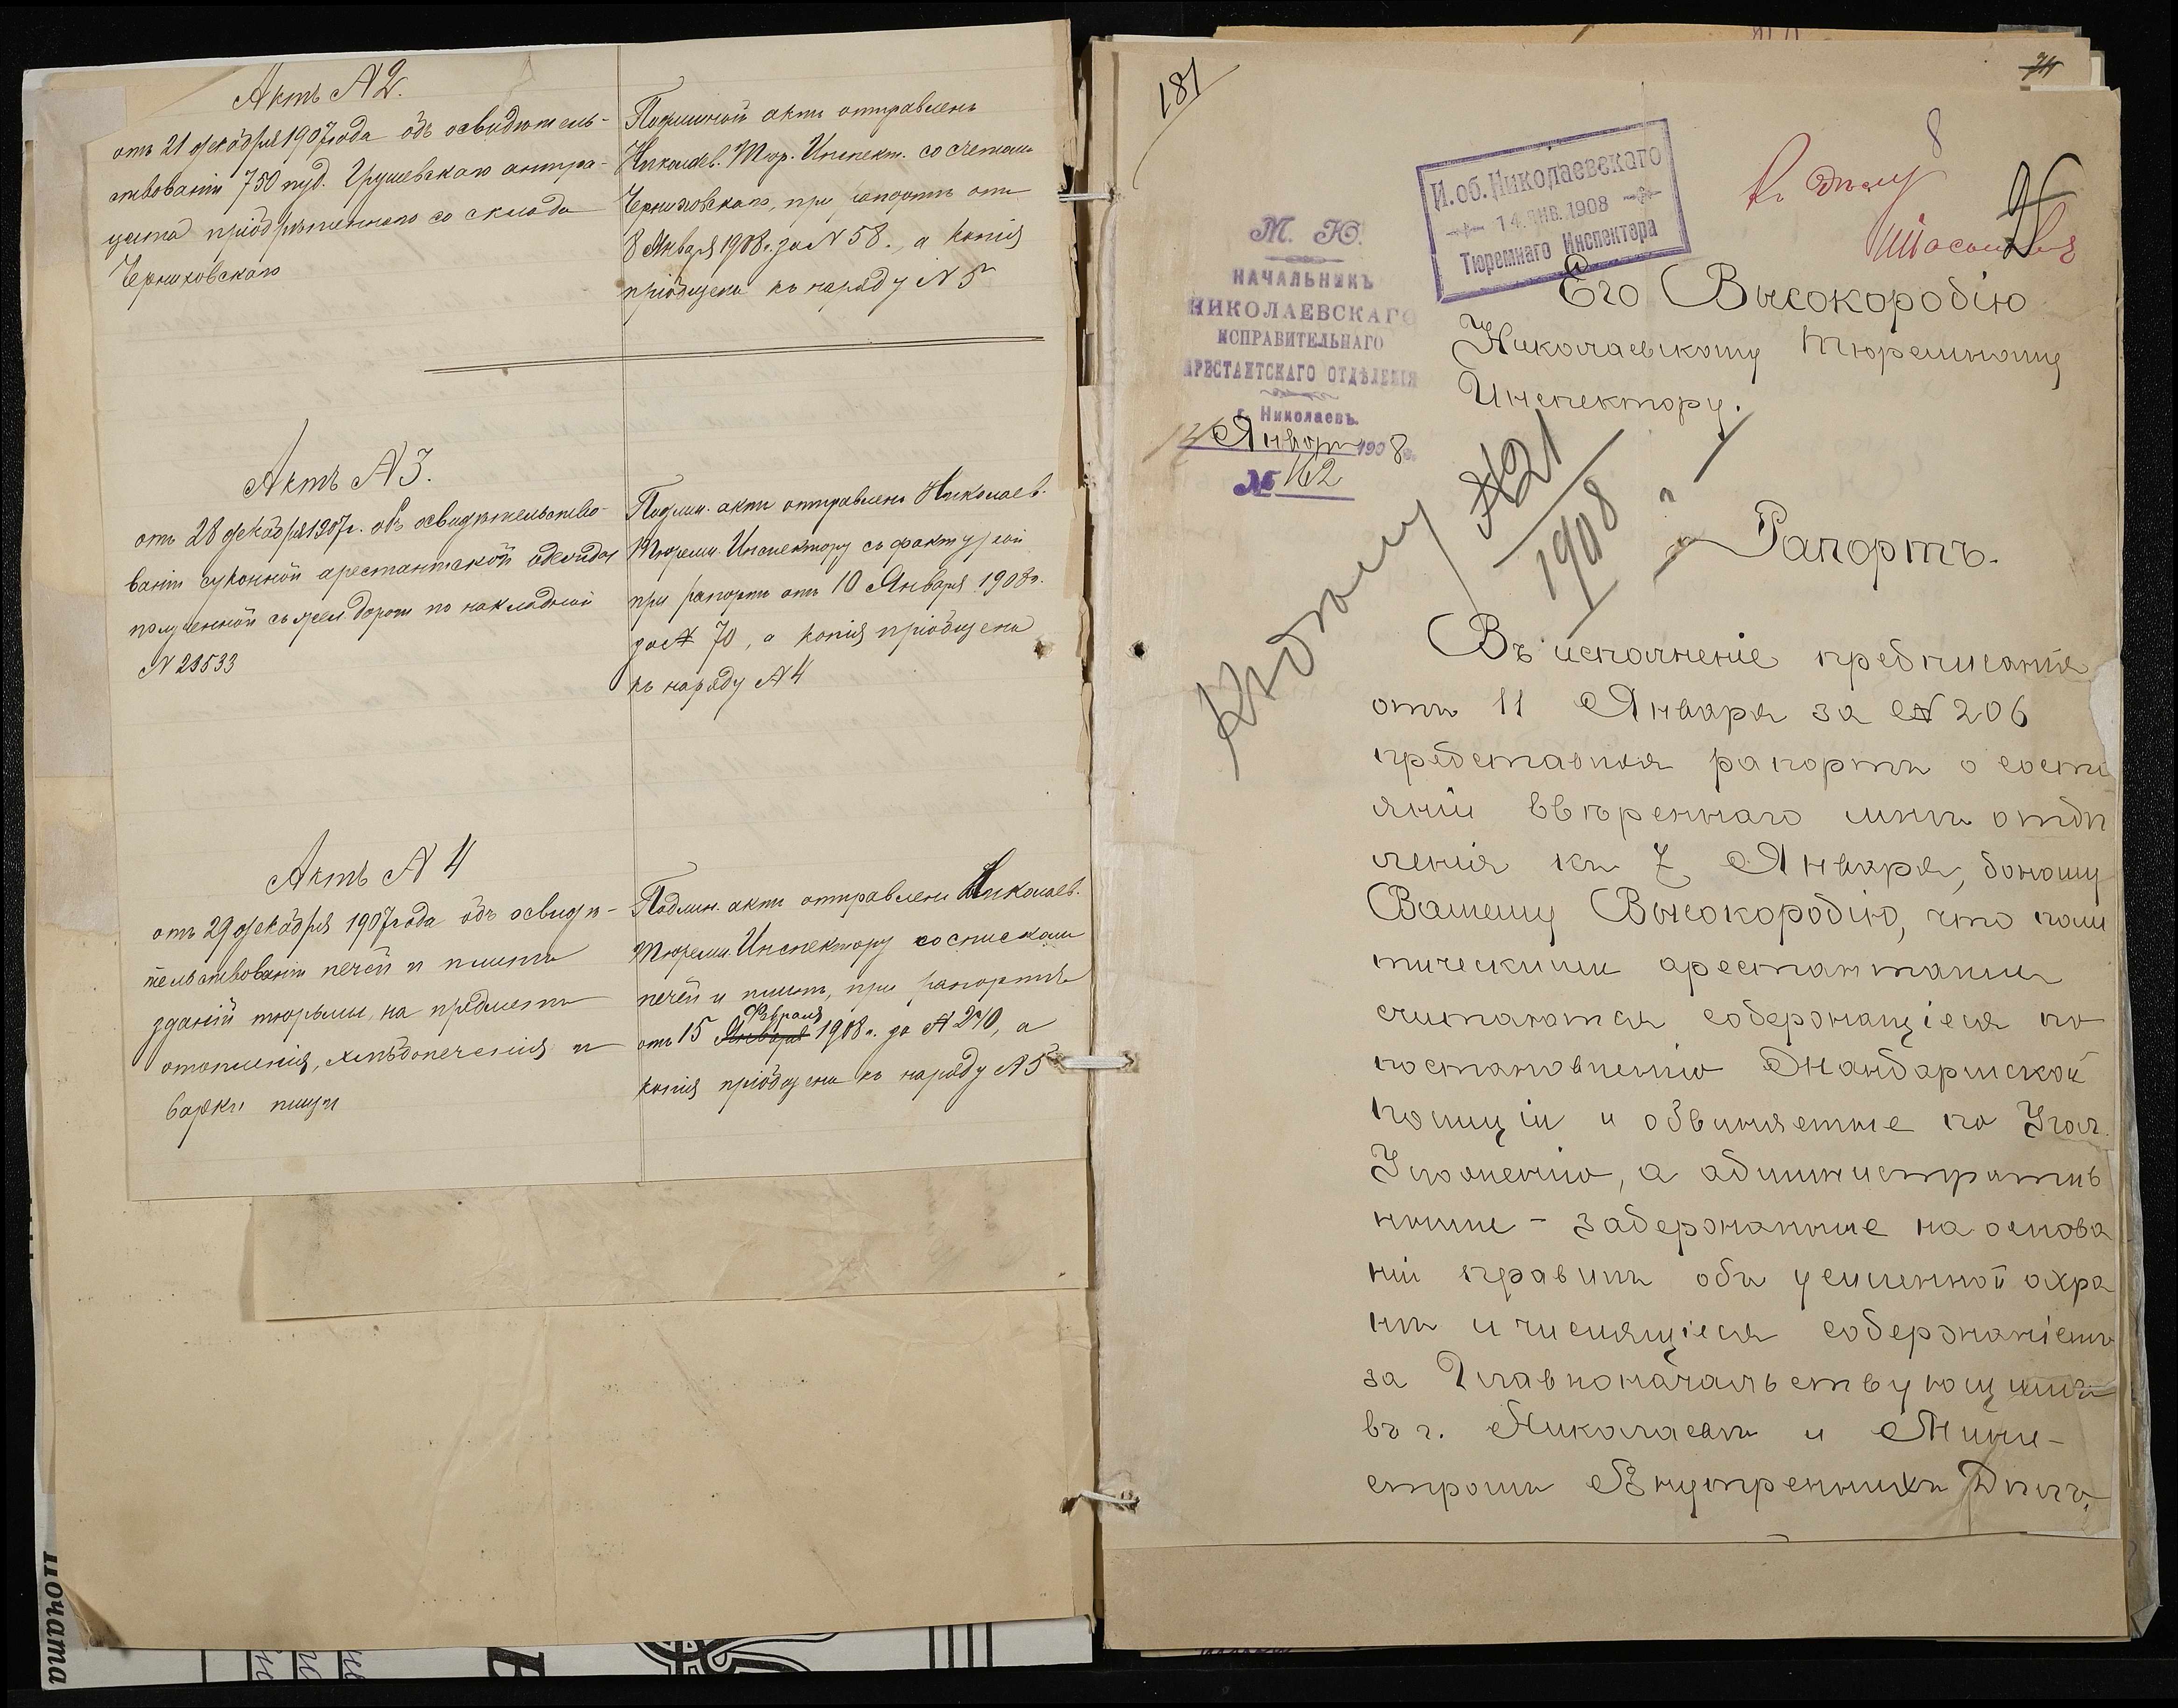 Актъ №2.
отъ 21 декабря 1907 года объ освидѣтель-
ствованіи 750 пуд. Грушевскаго антра-
цита пріобрѣтеннаго со склада
Черниховскаго
Подлинной актъ отправленъ
Николаев. Тюр. Инспект. со счетомъ
Черниховскаго, при рапортѣ отъ
8 Января 1908 г. за №58., а копія
пріобщена къ наряду №5
Актъ №3.
отъ 28 декабря 1907 г. объ освидѣтельство-
ваніи суконной арестантской одежды
полученной съ желѣз. дороги по накладной
№ 28533
Подлин. актъ отправленъ Николаев.
Тюремн. Инспектору съ фактурой
при рапортѣ отъ 10 Января 1908 г.
за № 70, а копія пріобщена
къ наряду №4
Актъ №4
отъ 29 декабря 1907 года объ освидѣ-
тельствованіи печей и плитъ
зданій тюрьмы, на предметъ
отопленія, хлѣбопеченія и
варки пищи
Подлин. актъ отправленъ Николаев.
Тюремн. Инспектору со спискомъ
печей и плитъ, при рапортѣ
Февраля
отъ 15 Января 1908 г. за № 240, а
копія пріобщена къ наряду №5
181
8
къ дѣлу
И. об. Николаевскаго
14 ЯНВ. 1908
Тюремнаго Инспектора
М. Ю.
НАЧАЛЬНИКЪ
НИКОЛАЕВСКАГО
ИСПРАВИТЕЛЬНАГО
АРЕСТАНТСКАГО ОТДѢЛЕНІЯ
г. Николаевъ.
Января 1908 г.
№ 162
Его Высокородію
Николаевскому Тюремному
Инспектору.
Къ дѣлу №21
1908 г.
Рапортъ.
Въ исполненіе предписанія
отъ 11 Января за № 206
представляя рапортъ о состо
яніи ввѣреннаго мнѣ отдѣ
ленія къ 7 Января, доношу
Вашему Высокородію, что поли
тическими арестантами
считаются содержащіеся по
постановленію Жандармской
полиціи и обвиняемые по Угол.
Уложенію, а административ
ными - задержанные на основа
ніи правилъ объ усиленной охра
нѣ и числящіеся содержаніемъ
за Главноначальствующимъ
въ г. Николаевѣ и Мини-
стромъ Внутреннихъ Дѣлъ,